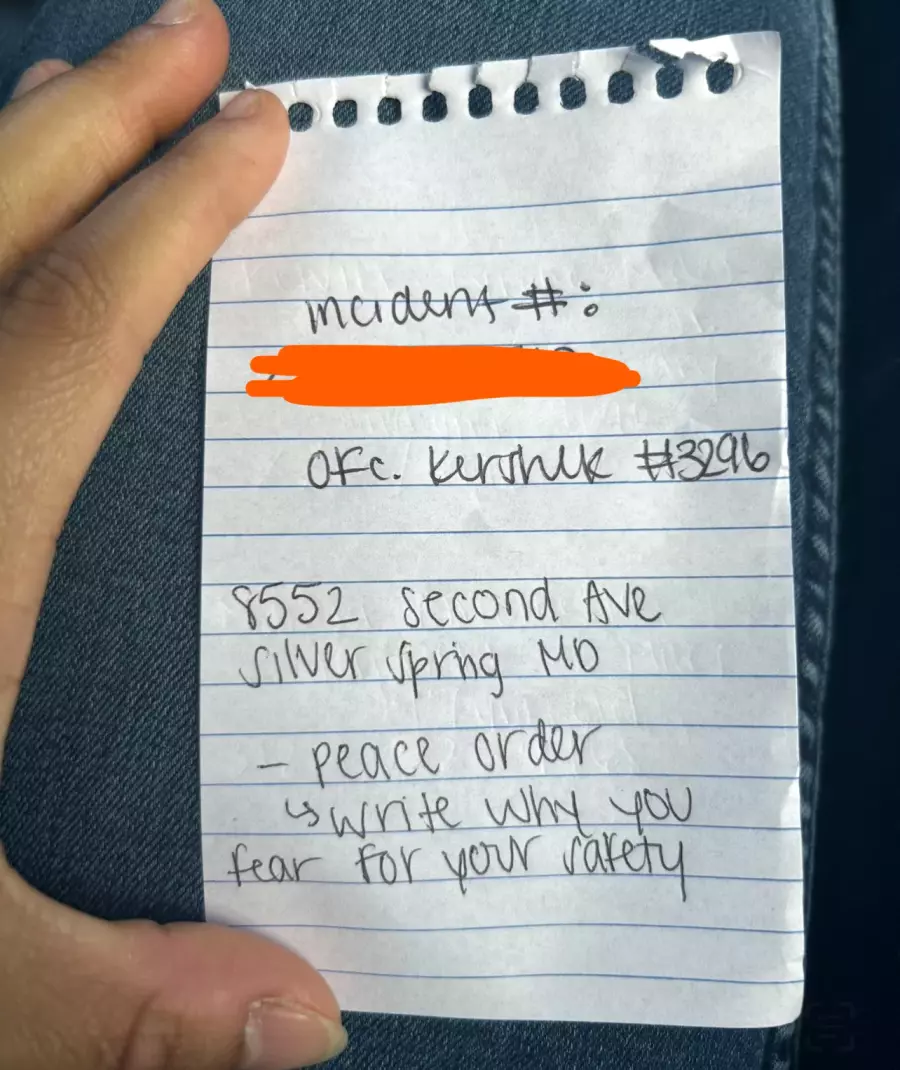 incident #:
OFc. #3296
8552 second Ave
silver spring MD
- peace order
↳ write why you
fear for your safety